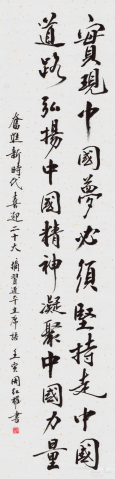 實現中國夢必須堅持走中國
道路弘揚中國精神凝聚中國力量
奮進新時代喜迎二十大 摘習近平主席語 壬寅周紅 書